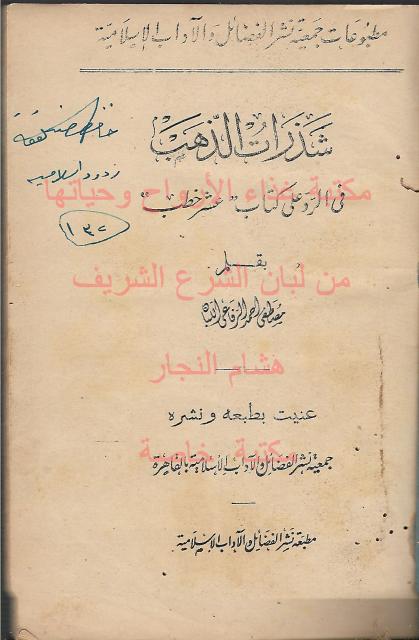 مطبوعات جمعية نشر الفضائل والآداب الإسلامية
شذرات الذهب
في الرد على كتاب "عشر خطب"
بقلم
مصطفى احمد الرفاعي اللبان
عنيت بطبعه ونشره
جمعية نشر الفضائل والآداب الإسلامية بالقاهرة
مطبعة نشر الفضائل والآداب الإسلامية
ردود اسلاميه
١٣٠
مكتبة غذاء الأرواح وحياتها
من لبان الشرع الشريف
هشام النجار
مكتبة خاصة